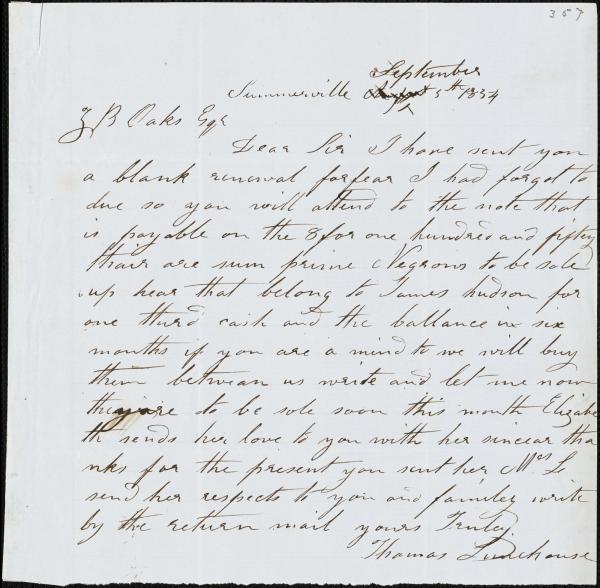 357
September
Summerville August 5th 1854
Z B Oaks Esqr
Dear Sir I have sent you
a blank renewal forfear I had forgot to
due so you will attend to the note that
is payable on the 8 for one hundred and fiftey
thair are sum prime Negrons to be sole
up hear that belong to James hudson for
one third cash and the ballance in six
months if you are a mind to we will buy
them betwean us write and let me now
they are to be sole soon this month Elizabe
th sends her love to you with her sincear tha
nks for the present you sent her Mrs L
send her respects to you and familey write
by the return mail yours Truley
Thomas Limehouse